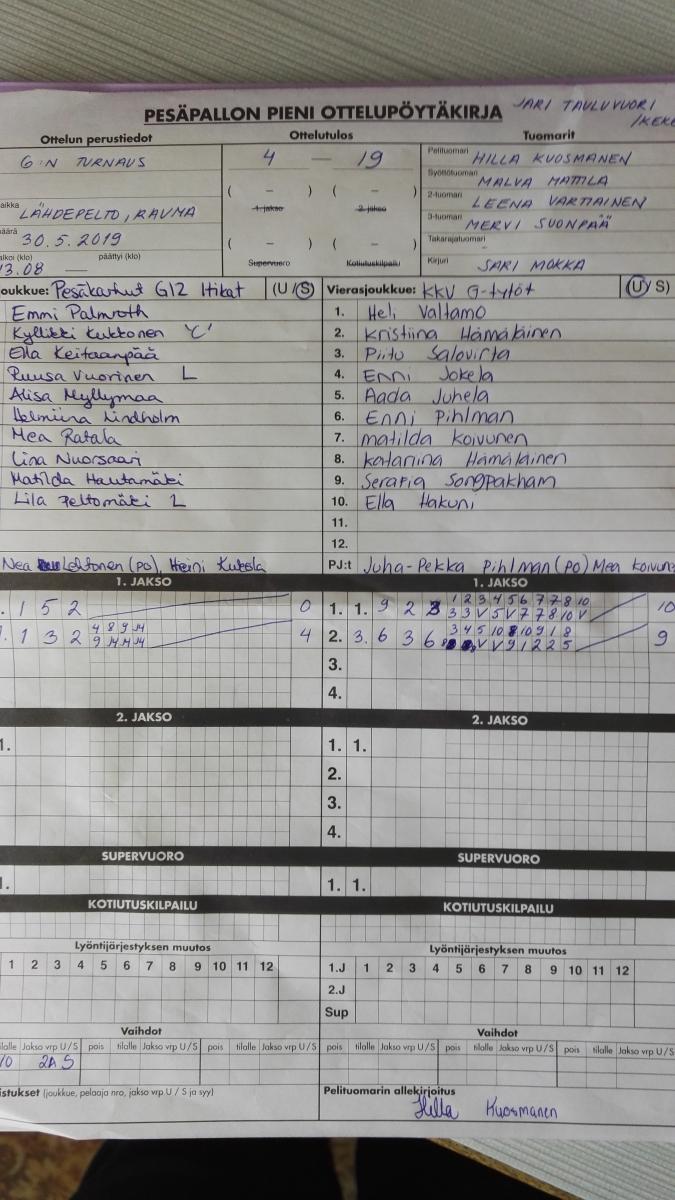 PESÄPALLON PIENI OTTELUPÖYTÄKIRJA JARI TAULUVUORI
/KEKE
Ottelun perustiedot Ottelutulos Tuomarit
G:N TURNAUS 4 — 19 Pelituomari HILLA KUOSMANEN
Syöttötuomari MALVA MATTILA
( – ) ( – ) 2-tuomari LEENA VARTIAINEN
aikka LÄHDEPELTO, RAUMA 1. jakso 2. jakso 3-tuomari MERVI SUONPÄÄ
äärä 30.5.2019 Takarajatuomari
alkoi (klo) päättyi (klo) ( – ) ( – )
13.08 — Supervuoro Kotiutuskilpailu Kirjuri SARI MOKKA
oukkue: Pesäkarhut G12 Itikat (U/S) Vierasjoukkue: KKV G-tytöt (U/S)
Emmi Palmroth 1. Heli Valtamo
Kyllikki Kukkonen 'C' 2. Kristiina Hämäläinen
Ella Keitaanpää 3. Piitu Salovirta
Ruusa Vuorinen L 4. Enni Jokela
Alisa Myllymaa 5. Aada Juhela
Helmiina Lindholm 6. Enni Pihlman
Mea Ratala 7. matilda koivunen
Iina Nuorsaari 8. katariina Hämäläinen
Matilda Hautamäki 9. Serafia Songpakham
Lila Peltomäki L 10. Ella Hakuni
11.
12.
Nea Lehtonen (PO), Heini Kukola PJ:t Juha-Pekka Pihlman (PO) Mea koivune
1. JAKSO 1. JAKSO
. 1 5 2 0 1. 1. 9 2 3 1 2 3 4 5 6 7 7 8 10 10
3 3 V 5 V 7 7 8 10 V
. 1 3 2 4 8 9 14 4 2. 3. 6 3 6 3 4 5 10 8 10 9 1 8 9
9 14 14 14 V V 9 1 2 2 5
3.
4.
2. JAKSO 2. JAKSO
1. 1. 1.
2.
3.
4.
SUPERVUORO SUPERVUORO
1. 1. 1.
KOTIUTUSKILPAILU KOTIUTUSKILPAILU
Lyöntijärjestyksen muutos Lyöntijärjestyksen muutos
1 2 3 4 5 6 7 8 9 10 11 12 1.J 1 2 3 4 5 6 7 8 9 10 11 12
2.J
Sup
Vaihdot Vaihdot
ilalle Jakso vrp U/S pois tilalle Jakso vrp U/S pois tilalle Jakso vrp U/S pois tilalle Jakso vrp U/S pois tilalle Jakso vrp U/S pois tilalle Jakso vrp U/S
10 2A S
istukset (joukkue, pelaaja nro, jakso vrp U / S ja syy) Pelituomarin allekirjoitus
Hilla Kuosmanen